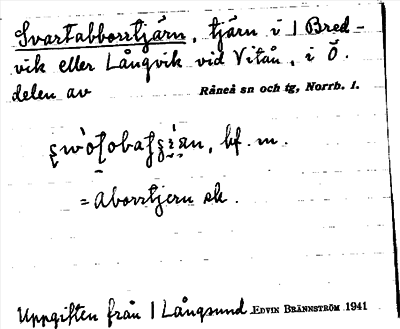 Svartabborrtjärn, tjärn i 1 Bred-
vik eller Långvik vid Vitån, i Ö.
delen av Råneå sn och tg, Norrb. l.
bf. m.
= Aborrtjern sk.
Uppgiften från 1 Långsund EDVIN BRÄNNSTRÖM 1941